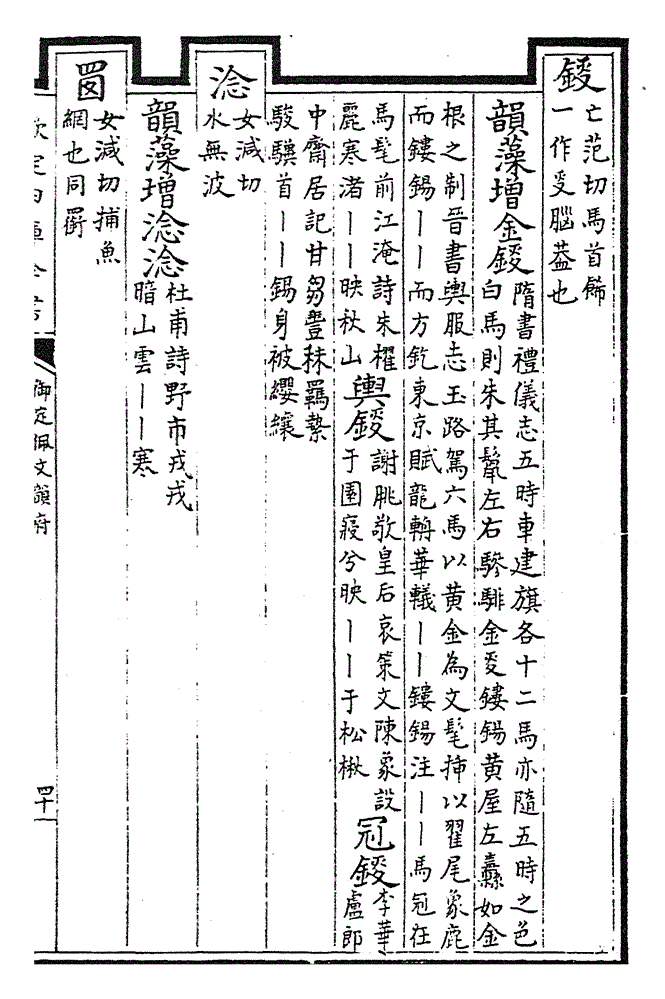 鋄 亡范切馬首飾
一作㚇腦葢也
韻藻增金鋄 隋書禮儀志五時車建旗各十二馬亦隨五時之色
白馬則朱其鬛左右驂騑金㚇鏤鍚黄屋左纛如金
根之制晉書輿服志玉路駕六馬以黄金為文髦揷以翟尾象鹿
而鏤鍚丨丨而方釳東京賦龍輈華轙丨丨鏤鍚注丨丨馬冠在
馬髦前江淹詩朱櫂
麗寒渚丨丨映秋山
輿鋄 謝朓敬皇后哀策文陳象設
于園寢兮映丨丨于松楸
冠鋄 李華
盧郎
中齋居記甘芻豐秣羈縶
駿驥首丨丨鍚身被纓纕
淰 女減切
水無波
韻藻增淰淰 杜甫詩野市戎戎
暗山雲丨丨寒
女減切捕魚
網也同罱
欽定四庫全書
御定佩文韻府
四十一